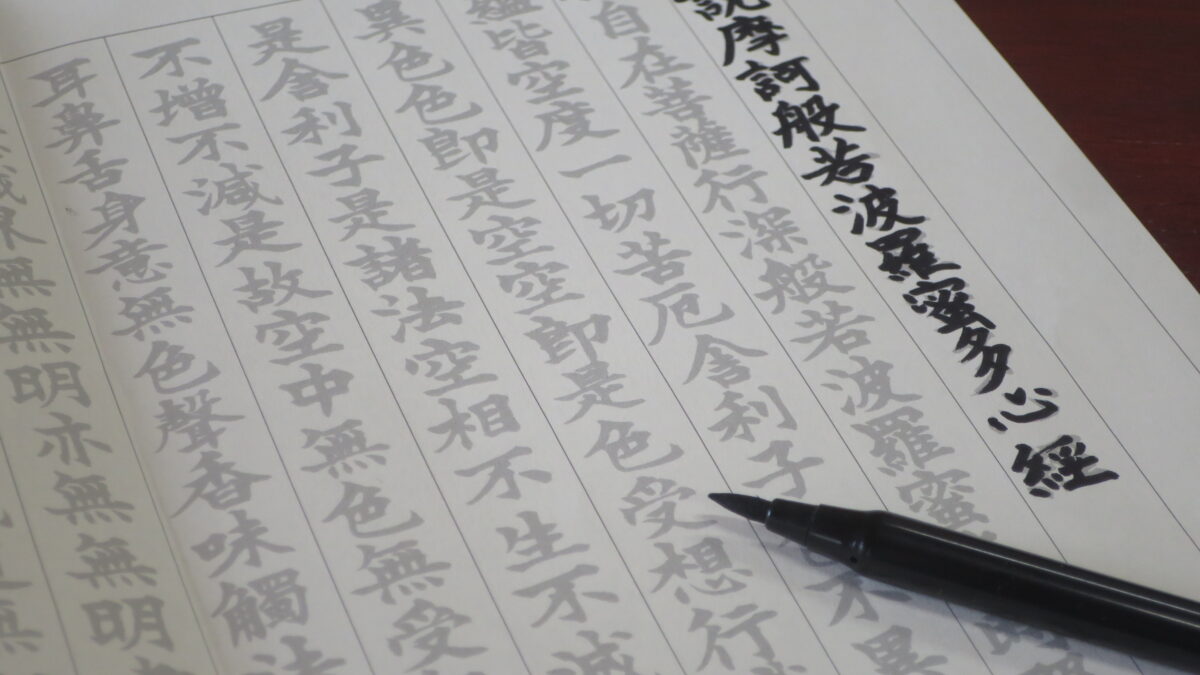 説摩訶般若波羅蜜多心經
自在菩薩行深般若波羅蜜
蘊皆空度一切苦厄舍利子不異
異色色即是空空即是色受想行
是舍利子是諸法空相不生不滅
不增不減是故空中無色無受
耳鼻舌身意無色聲香味觸法
識界無無明亦無無明